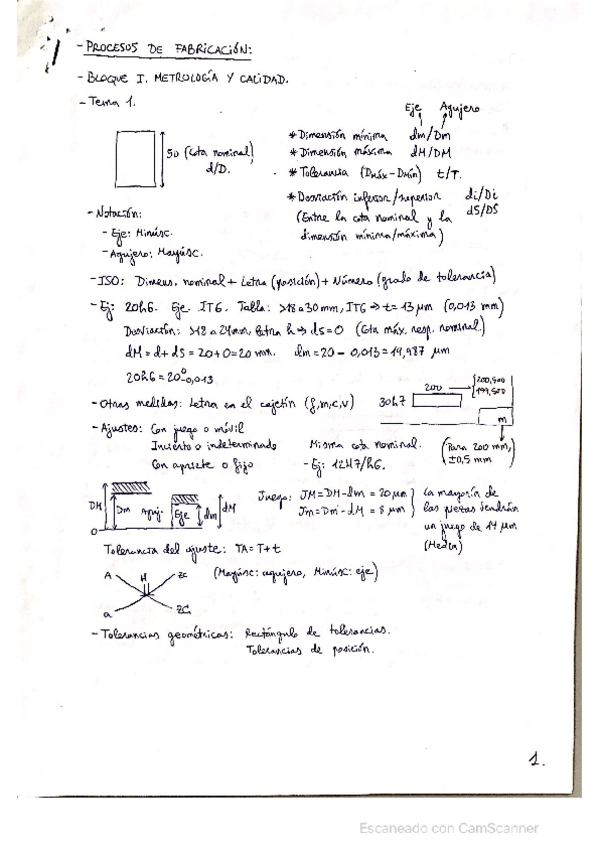 - PROCESOS DE FABRICACIÓN:
- BLOQUE I. METROLOGÍA Y CALIDAD.
- Tema 1.
Eje Agujero
50 (Cota nominal)
d/D.
* Dimensión mínima dm/Dm
* Dimensión máxima dM/DM
* Tolerancia (Dmáx-Dmín) t/T.
* Desviación inferior/superior di/Di
dS/DS
(Entre la cota nominal y la
dimensión mínima/máxima)
- Notación:
- Eje: Minúsc.
- Agujero: Mayúsc.
- ISO: Dimens. nominal + Letra (posición) + Número (grado de tolerancia)
- Ej: 20h6. Eje IT6. Tabla: >18 a 30 mm, IT6 → t = 13 μm (0,013 mm)
Desviación: >18 a 24mm, letra h → ds=0 (Cota máx. resp. nominal.)
dM = d + ds = 20+0=20 mm. dm=20 - 0,013 = 19,987 μm
20h6 = 20⁰-0,013
- Otras medidas: Letra en el cajetín (f,m,c,v)
30h7
200
200,500
199,500
m
(Para 200 mm,
±0,5 mm)
- Ajustes: Con juego o móvil
Incierto o indeterminado
Con apriete o fijo
Misma cota nominal.
- Ej: 12H7/h6.
DM Dm Aguj. Eje dm dM
0
Juego: JM=DM-dm = 20 μm
Jm=Dm-dM = 8 μm
La mayoría de
las piezas tendrán
un juego de 14 μm
(Media)
Tolerancia del ajuste: TA=T+t
A H zc
a ZC
(Mayúsc: agujero, Minúsc: eje)
- Tolerancias geométricas: Rectángulo de tolerancias.
Tolerancias de posición.
1.
Escaneado con CamScanner